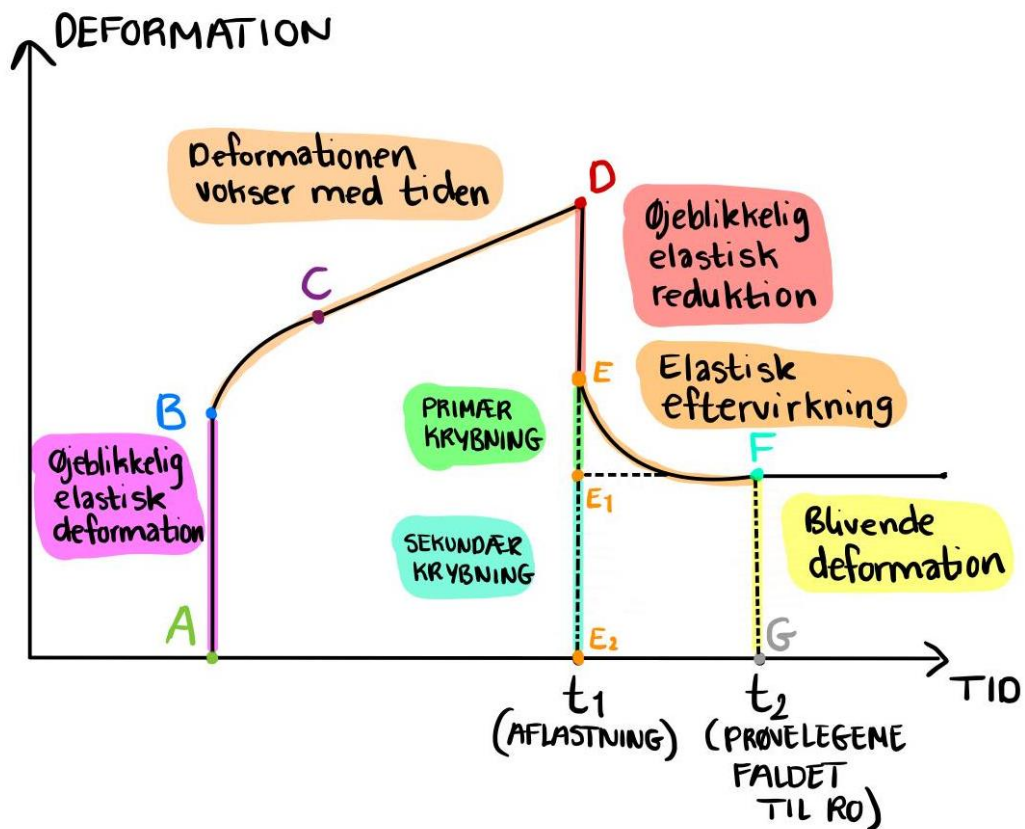 DEFORMATION
Deformationen
vokser med tiden
D
Øjeblikkelig
elastisk
reduktion
C
E
Elastisk
eftervirkning
B
PRIMÆR
KRYBNING
F
Øjeblikkelig
elastisk
deformation
E1
Blivende
deformation
SEKUNDÆR
KRYBNING
A
E2
G
TID
t1
(AFLASTNING)
t2
(PRØVELEGEME
FALDET
TIL RO)